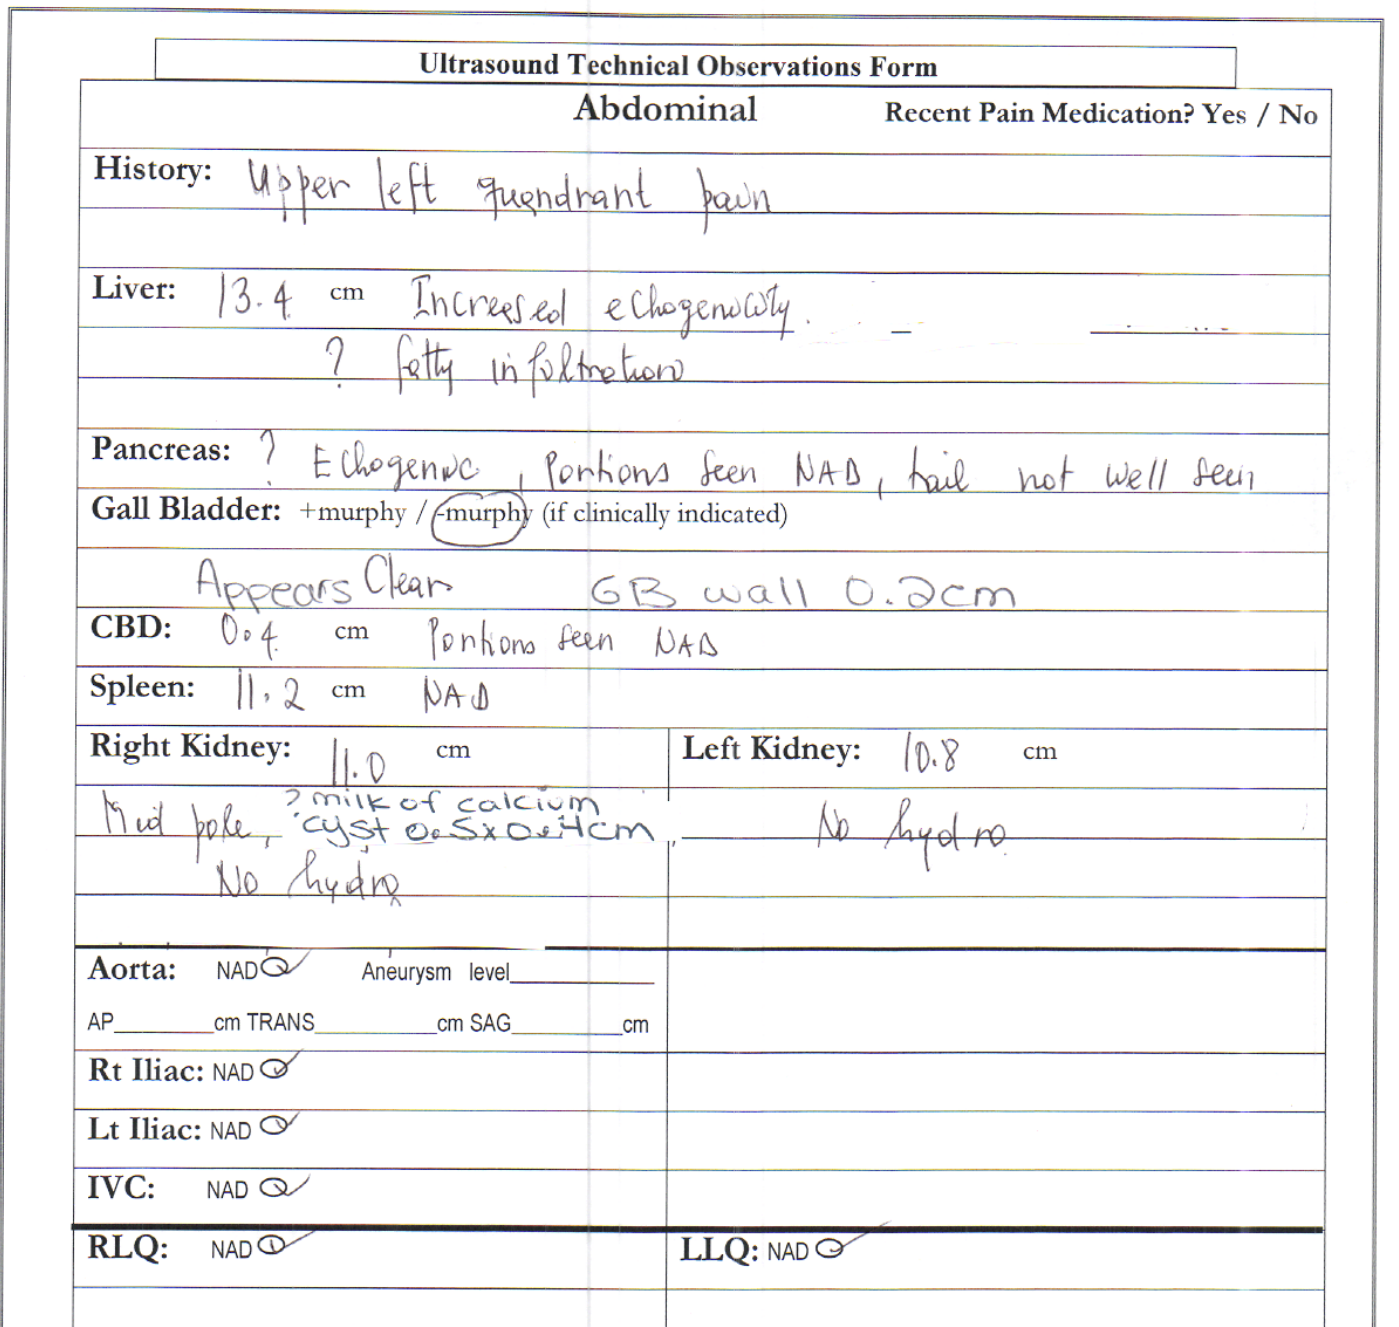 Ultrasound Technical Observations Form
Abdominal Recent Pain Medication? Yes / No
History: Upper left quandrant pain
Liver: 13.4 cm Increased echogenicity.
? fatty infiltration
Pancreas: ? Echogenic, Portions seen NAD, tail not well seen
Gall Bladder: +murphy / -murphy (if clinically indicated)
Appears Clear GB wall 0.2cm
CBD: 0.4 cm Portions seen NAD
Spleen: 11.2 cm NAD
Right Kidney: 11.0 cm Left Kidney: 10.8 cm
? milk of calcium
Mid pole, cyst 0.5x0.4cm, No hydro
No hydro
Aorta: NAD Aneurysm level
AP cm TRANS cm SAG cm
Rt Iliac: NAD
Lt Iliac: NAD
IVC: NAD
RLQ: NAD LLQ: NAD